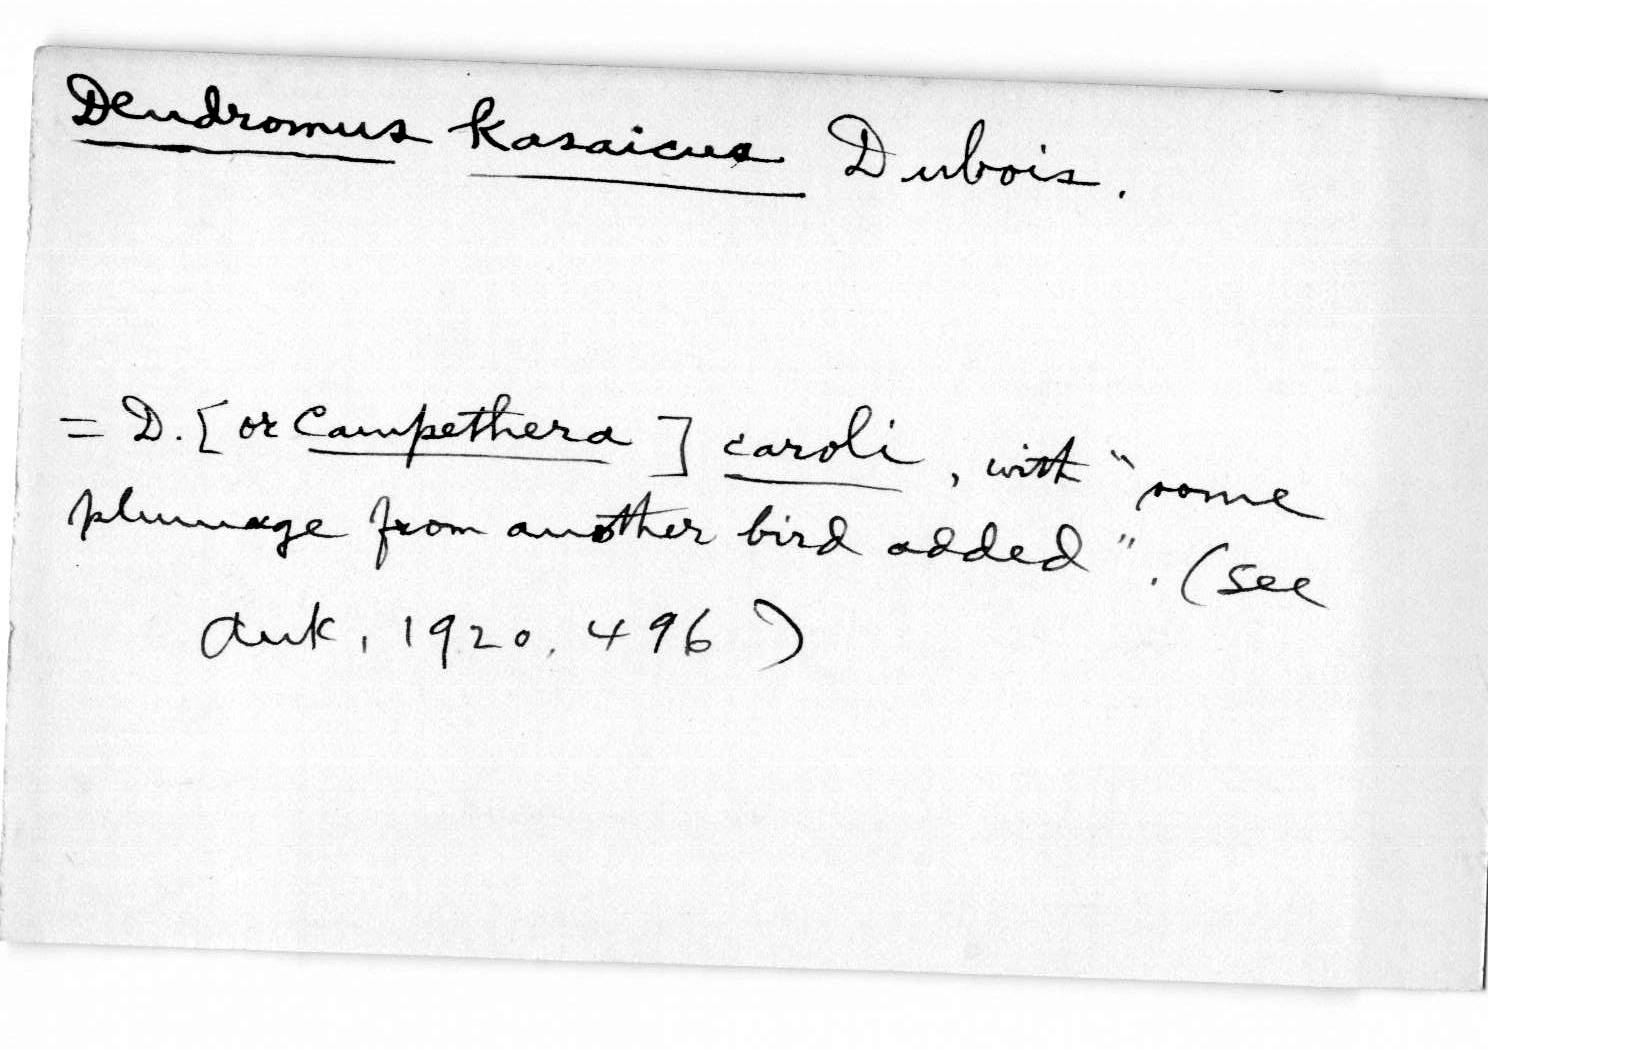 Dendromus kasaicus Dubois.
= D. [or Campethera] caroli, with "some
plumage from another bird added". (see
Auk, 1920, 496)